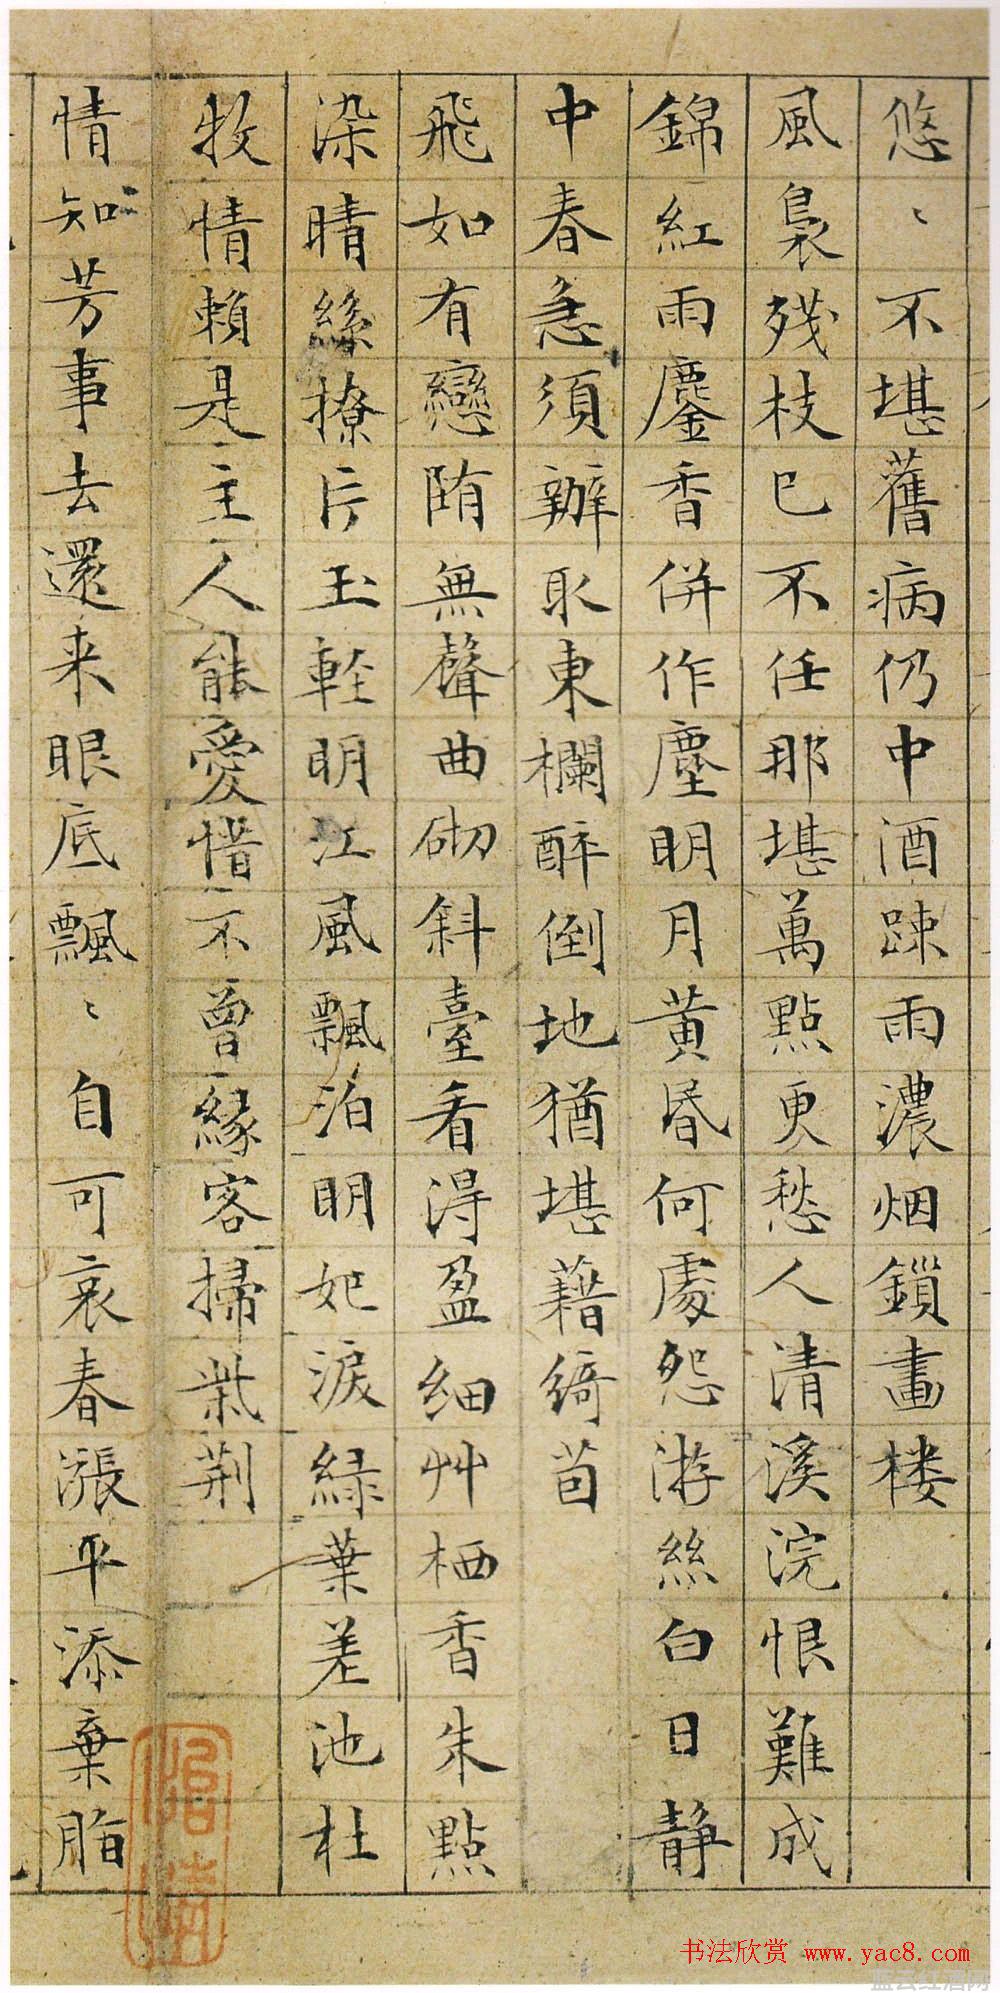 悠〻不堪舊病仍中酒踈雨濃烟鎖畫楼
風裊残枝已不任那堪萬點更愁人清溪浣恨難成
錦紅雨鏖香併作塵明月黄昏何處怨游絲白日静
中春急須辦取東欄醉倒地猶堪藉綺茵
飛如有戀陏無聲曲砌斜臺看得盈細艸栖香朱點
染晴絲撩片玉輕明江風飄泊明妃淚緑葉差池杜
牧情賴是主人能愛惜不曾緣客掃柴荆
情知芳事去還来眼底飄〻自可哀春漲平添棄脂
书法欣赏 www.yac8.com